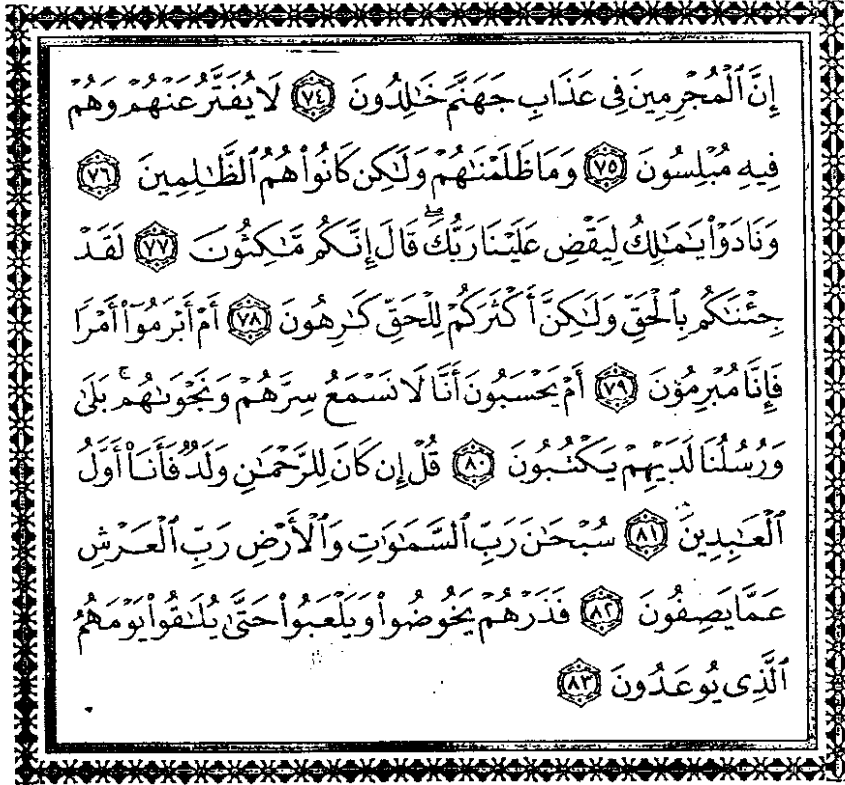 إِنَّ ٱلْمُجْرِمِينَ فِى عَذَابِ جَهَنَّمَ خَٰلِدُونَ ﴿٧٤﴾ لَا يُفَتَّرُ عَنْهُمْ وَهُمْ
فِيهِ مُبْلِسُونَ ﴿٧٥﴾ وَمَا ظَلَمْنَٰهُمْ وَلَٰكِن كَانُوا۟ هُمُ ٱلظَّٰلِمِينَ ﴿٧٦﴾
وَنَادَوْا۟ يَٰمَٰلِكُ لِيَقْضِ عَلَيْنَا رَبُّكَ ۖ قَالَ إِنَّكُم مَّٰكِثُونَ ﴿٧٧﴾ لَقَدْ
جِئْنَٰكُم بِٱلْحَقِّ وَلَٰكِنَّ أَكْثَرَكُمْ لِلْحَقِّ كَٰرِهُونَ ﴿٧٨﴾ أَمْ أَبْرَمُوٓا۟ أَمْرًا
فَإِنَّا مُبْرِمُونَ ﴿٧٩﴾ أَمْ يَحْسَبُونَ أَنَّا لَا نَسْمَعُ سِرَّهُمْ وَنَجْوَىٰهُم ۚ بَلَىٰ
وَرُسُلُنَا لَدَيْهِمْ يَكْتُبُونَ ﴿٨٠﴾ قُلْ إِن كَانَ لِلرَّحْمَٰنِ وَلَدٌ فَأَنَا۠ أَوَّلُ
ٱلْعَٰبِدِينَ ﴿٨١﴾ سُبْحَٰنَ رَبِّ ٱلسَّمَٰوَٰتِ وَٱلْأَرْضِ رَبِّ ٱلْعَرْشِ
عَمَّا يَصِفُونَ ﴿٨٢﴾ فَذَرْهُمْ يَخُوضُوا۟ وَيَلْعَبُوا۟ حَتَّىٰ يُلَٰقُوا۟ يَوْمَهُمُ
ٱلَّذِى يُوعَدُونَ ﴿٨٣﴾